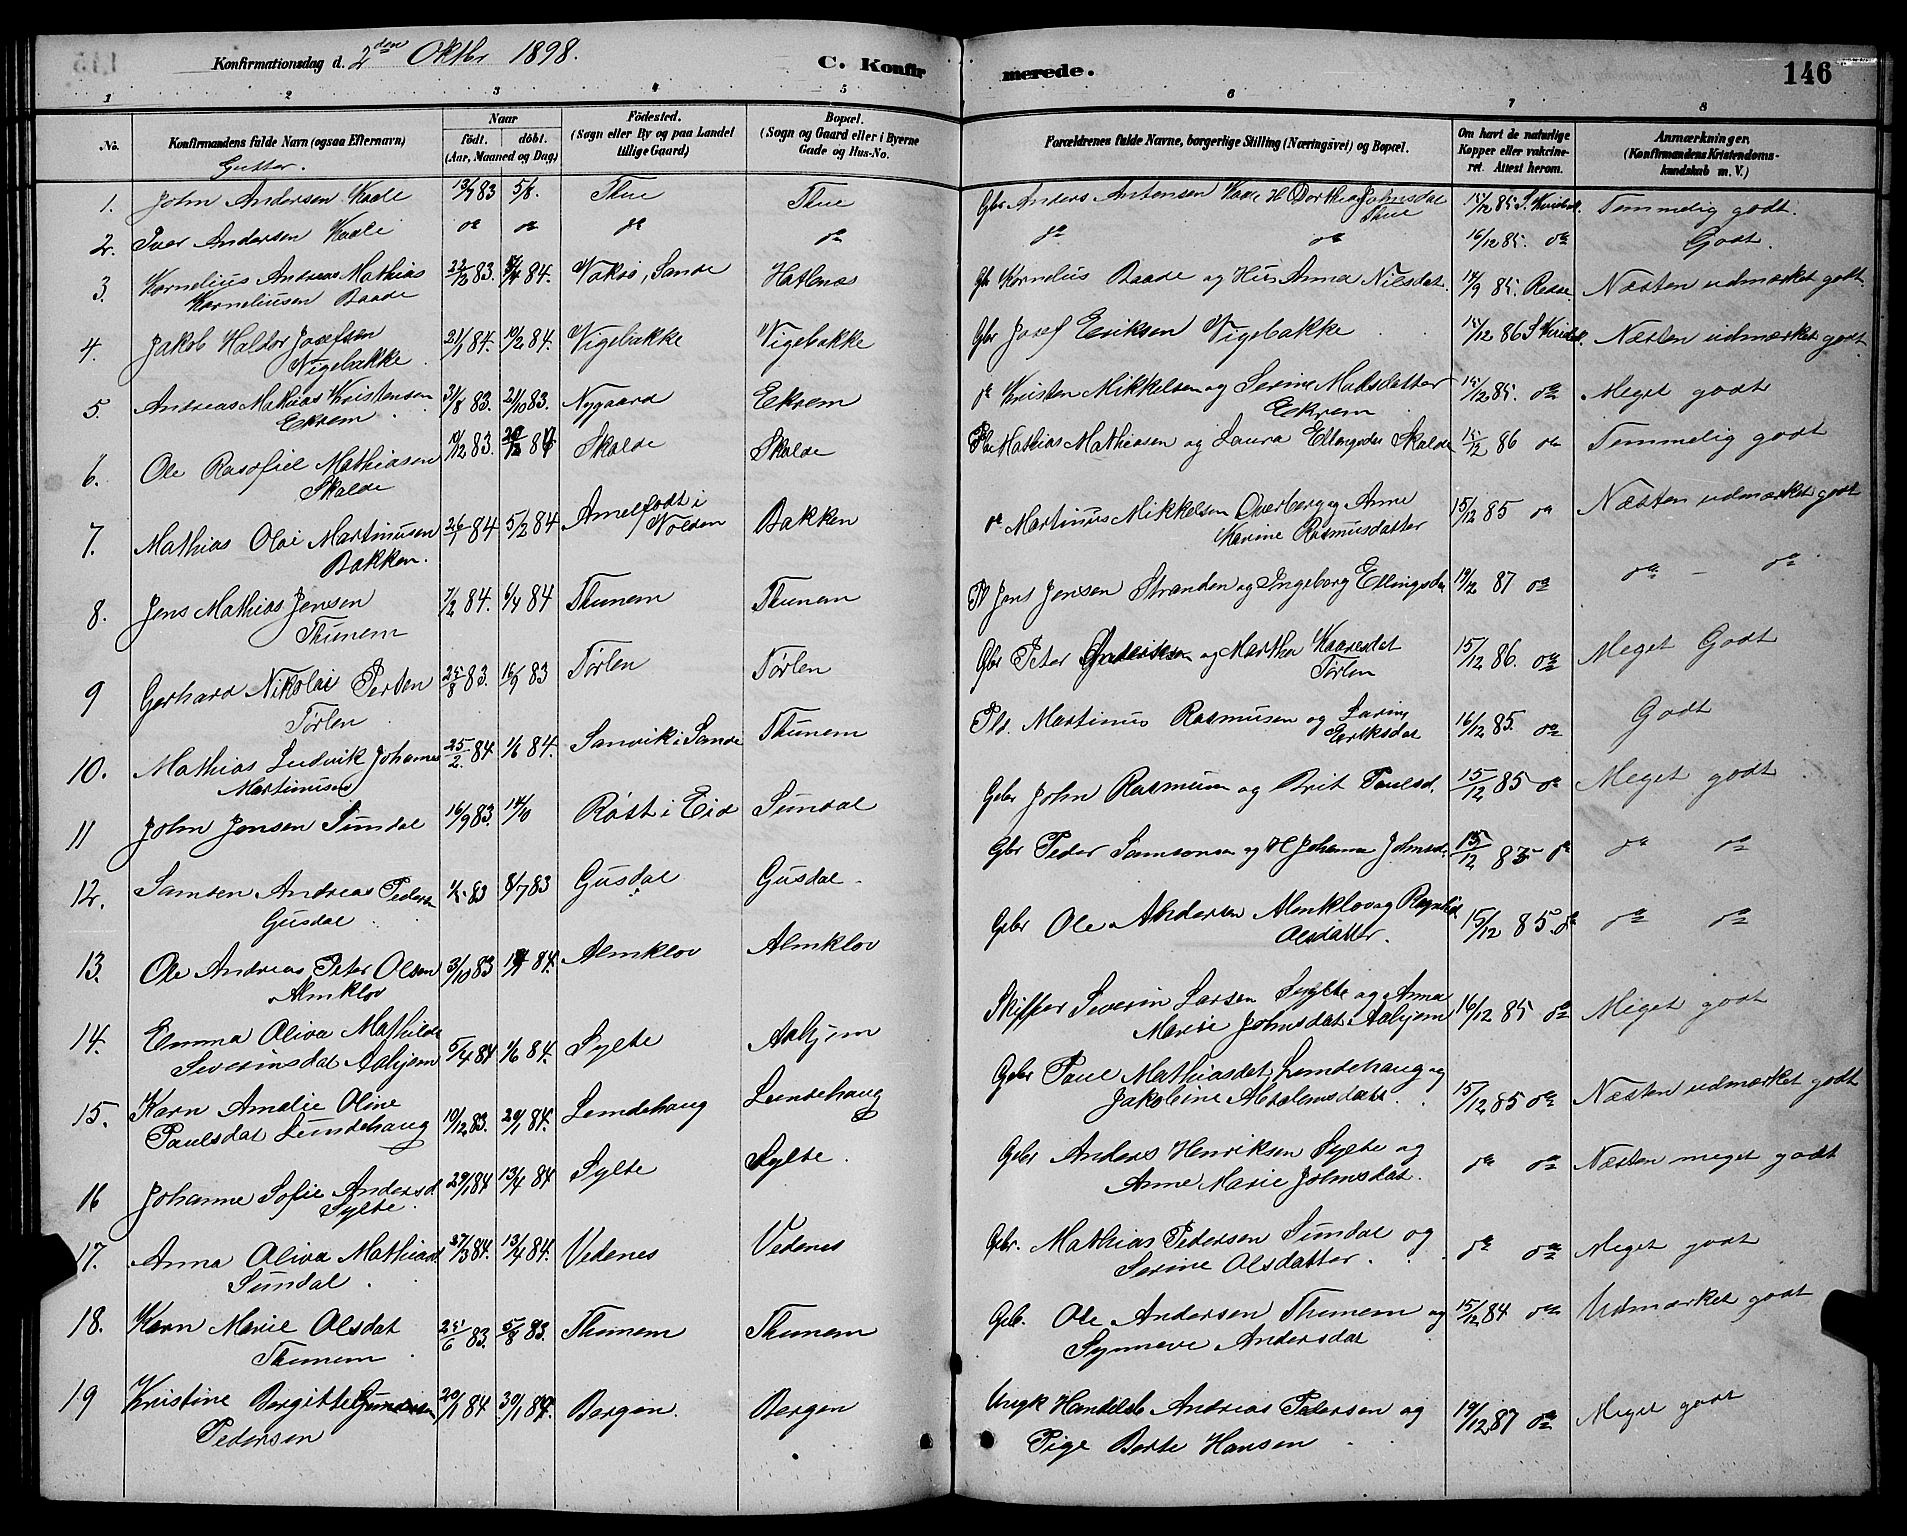 Konfirmationsdag d. 2den Oktbr 1898.
C. Konfirmerede.
146
1 2 3 4 5 6 7 8
No.
Konfirmandens fulde Navn (ogsaa Efternavn)
Gutter.
Naar
født. døbt.
(Aar, Maaned og Dag)
Fødested.
(Sogn eller By og paa Landet tillige Gaard)
Bopæl.
(Sogn og Gaard eller i Byerne Gade og Hus-No.
Forældrenes fulde Navne, borgerlige Stilling (Næringsvei) og Bopæl.
Om havt de naturlige Kopper eller vakcineret. Attest herom.
Anmærkninger.
(Konfirmandens Kristendomskundskab m. V.)
1. John Andersen Kaale 13/7 83 5/8. Thue Thue Gbr Anders Antonsen Kaale H Dorthea Johnsdat Thue 15/12 85 Temmelig godt.
2. Iver Andersen Kaale do do do do do do 16/12 85. do Godt.
3. Kornelius Andreas Mathias
Korneliusen Baade 22/12 83. 84. Voksø, Sande Hatlenes Gb Kornelius Baade og Hus Anna Nilsdat. 14/9 85. Næsten udmærket godt.
4. Jakob Haldor Josefsen
Vigebakke 21/1 84. 10/2 84. Vigebakke Vigebakke Gbr Josef Eriksen Vigebakke 15/12 86 Næsten udmærket godt.
5 Andreas Mathias Kristensen
Ekrem 31/8 83. 21/10 83. Nygaard Ekrem do Kristen Mikkelsen og Serine Madsdatter
Ekrem 15/12 85. do Meget godt
6. Ole Rasofiel Mathiasen
Skalde 10/12 83. Skalde Skalde Mathias Mathiasen og Laura Ellingsdtr Skalde 15/2 86 do Temmelig godt
7. Mathias Olai Martinusen
Bakken. 26/1 84 5/2 84 Amelfodt i
Volden Bakken do Martinus Mikkelsen Overberg og Anne
Karine Rasmusdatter 15/12 85 do Næsten udmærket godt
8. Jens Mathias Jensen
Thunem 7/2 84. 6/4 84 Thunem Thunem Jens Jensen Stranden og Ingeborg Ellingsda 19/12 87 do do - do
9 Gerhard Nikolai Perten
Tørlen 25/8 83. 16/9 83 Tørlen Tørlen Gbr Peter og Martha Kaaresdat
Tørlen 15/12 86. do Meget Godt
10. Mathias Ludvik Johannes
Martinusen 25/2 84 1/6 84. Sanvik i Sande Thunem Pls. Martinus Rasmusen og Larine
Eriksdat 16/12 85. do Godt
11 John Jensen Sundal 16/9 83. 14/10 Røst i Eid Sundal Gebr John Rasmusen og Brit Paulsd. 15/12 85 do Meget godt
12. Samsen Andreas Pedersn
Gusdal 83 8/7 83 Gusdal Gusdal Gbr Peder Samsonsen og H Johanna Johnsd. 15/12 85 do do do
13. Ole Andreas Peter Olsen
Almklov 3/10 83 84. Almklov Almklov Gebr Ole Andersen Almklov og Ragnhild
Olsdatter. 15/12 85. do do do
14. Emma Oliva Mathilde
Severinsdat Aahjem 5/4 84 1/6 84. Sylte Aahjem Skipper Severin Larsen Sylte og Anna
Marie Johnsdat Aahjem 16/12 85 do Meget godt
15. Karn Amalie Oline
Paulsdat Lundehaug 19/12 83. 20/1 84. Lundehaug Lundehaug Gebr Paul Mathiasdat Lundehaug og
Jakobine Absalomsdatt. 15/12 85 do Næsten udmærket godt
16 Johanne Sofie Andersd
Sylte. 29/1 84 13/4 84 Sylte Sylte. Gebr Anders Henriksen Sylte og
Anne Marie Johnsdat. do do Næsten meget godt
17. Anna Oliva Mathiasd
Sundal 27/3 84. 13/4 84. Vedenes Vedenes Gbr. Mathias Pedersen Sundal og
Serine Olsdatter. do do Meget godt
18. Karn Marie Olsdat
Thunem 25/6 83. 5/8 83. Thunem Thunem Geb. Ole Andersen Thunem og
Synneve Andersdat 15/12 84 do Udmærket godt
19 Kristine Bergitte
Pedersen 20/1 84 30/1 84. Bergen. Bergen Ungk Handelsb Andreas Pedersen og
Pige Berte Hansen 19/12 87 do Meget godt